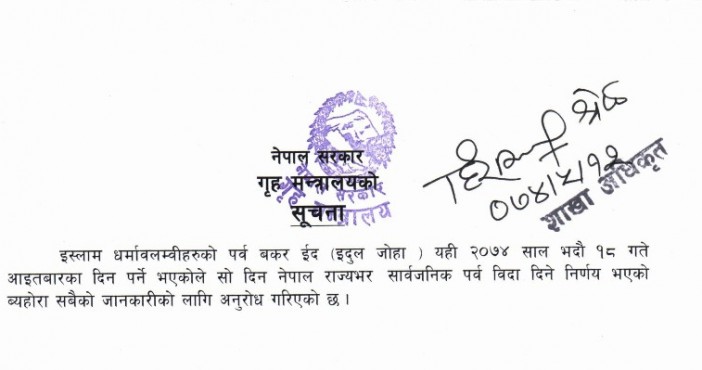 नेपाल सरकार
गृह मन्त्रालयको
सूचना
श्रेष्ठ
शाखा अधिकृत
इस्लाम धर्मावलम्वीहरुको पर्व बकर ईद (इदुल जोहा ) यही २०७४ साल भदौ १८ गते
आइतबारका दिन पर्ने भएकोले सो दिन नेपाल राज्यभर सार्वजनिक पर्व विदा दिने निर्णय भएको
ब्यहोरा सबैको जानकारीको लागि अनुरोध गरिएको छ ।